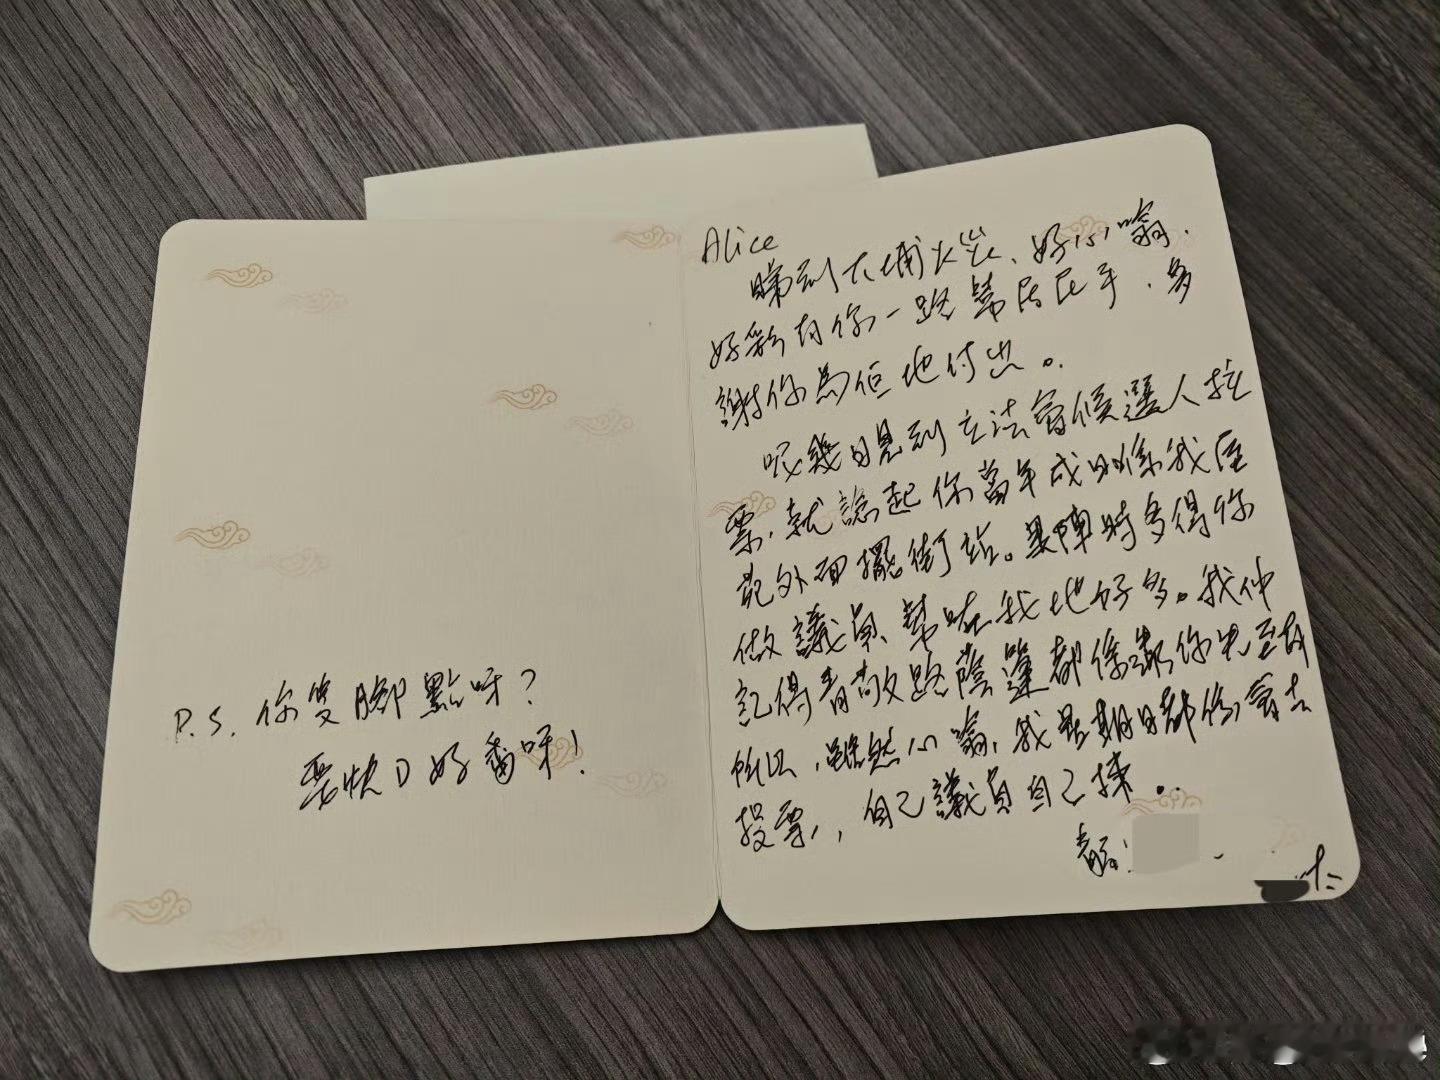 P.S. 你隻腳點呀?
要快D好番呀!
Alice
睇到大埔火災、好心噏.
好彩有你一路幫居民手.多
謝你為佢地付出。
呢幾日見到立法會候選人拉
票,就諗起你當年成日係我屋
苑外面擺街站。果陣時多得你
做議員、幫咗我地好多。我仲
記得青敬路蔭篷都係靠你先至有
所以,雖然心噏,我星期日都係會去
投票,自己議員自己揀..